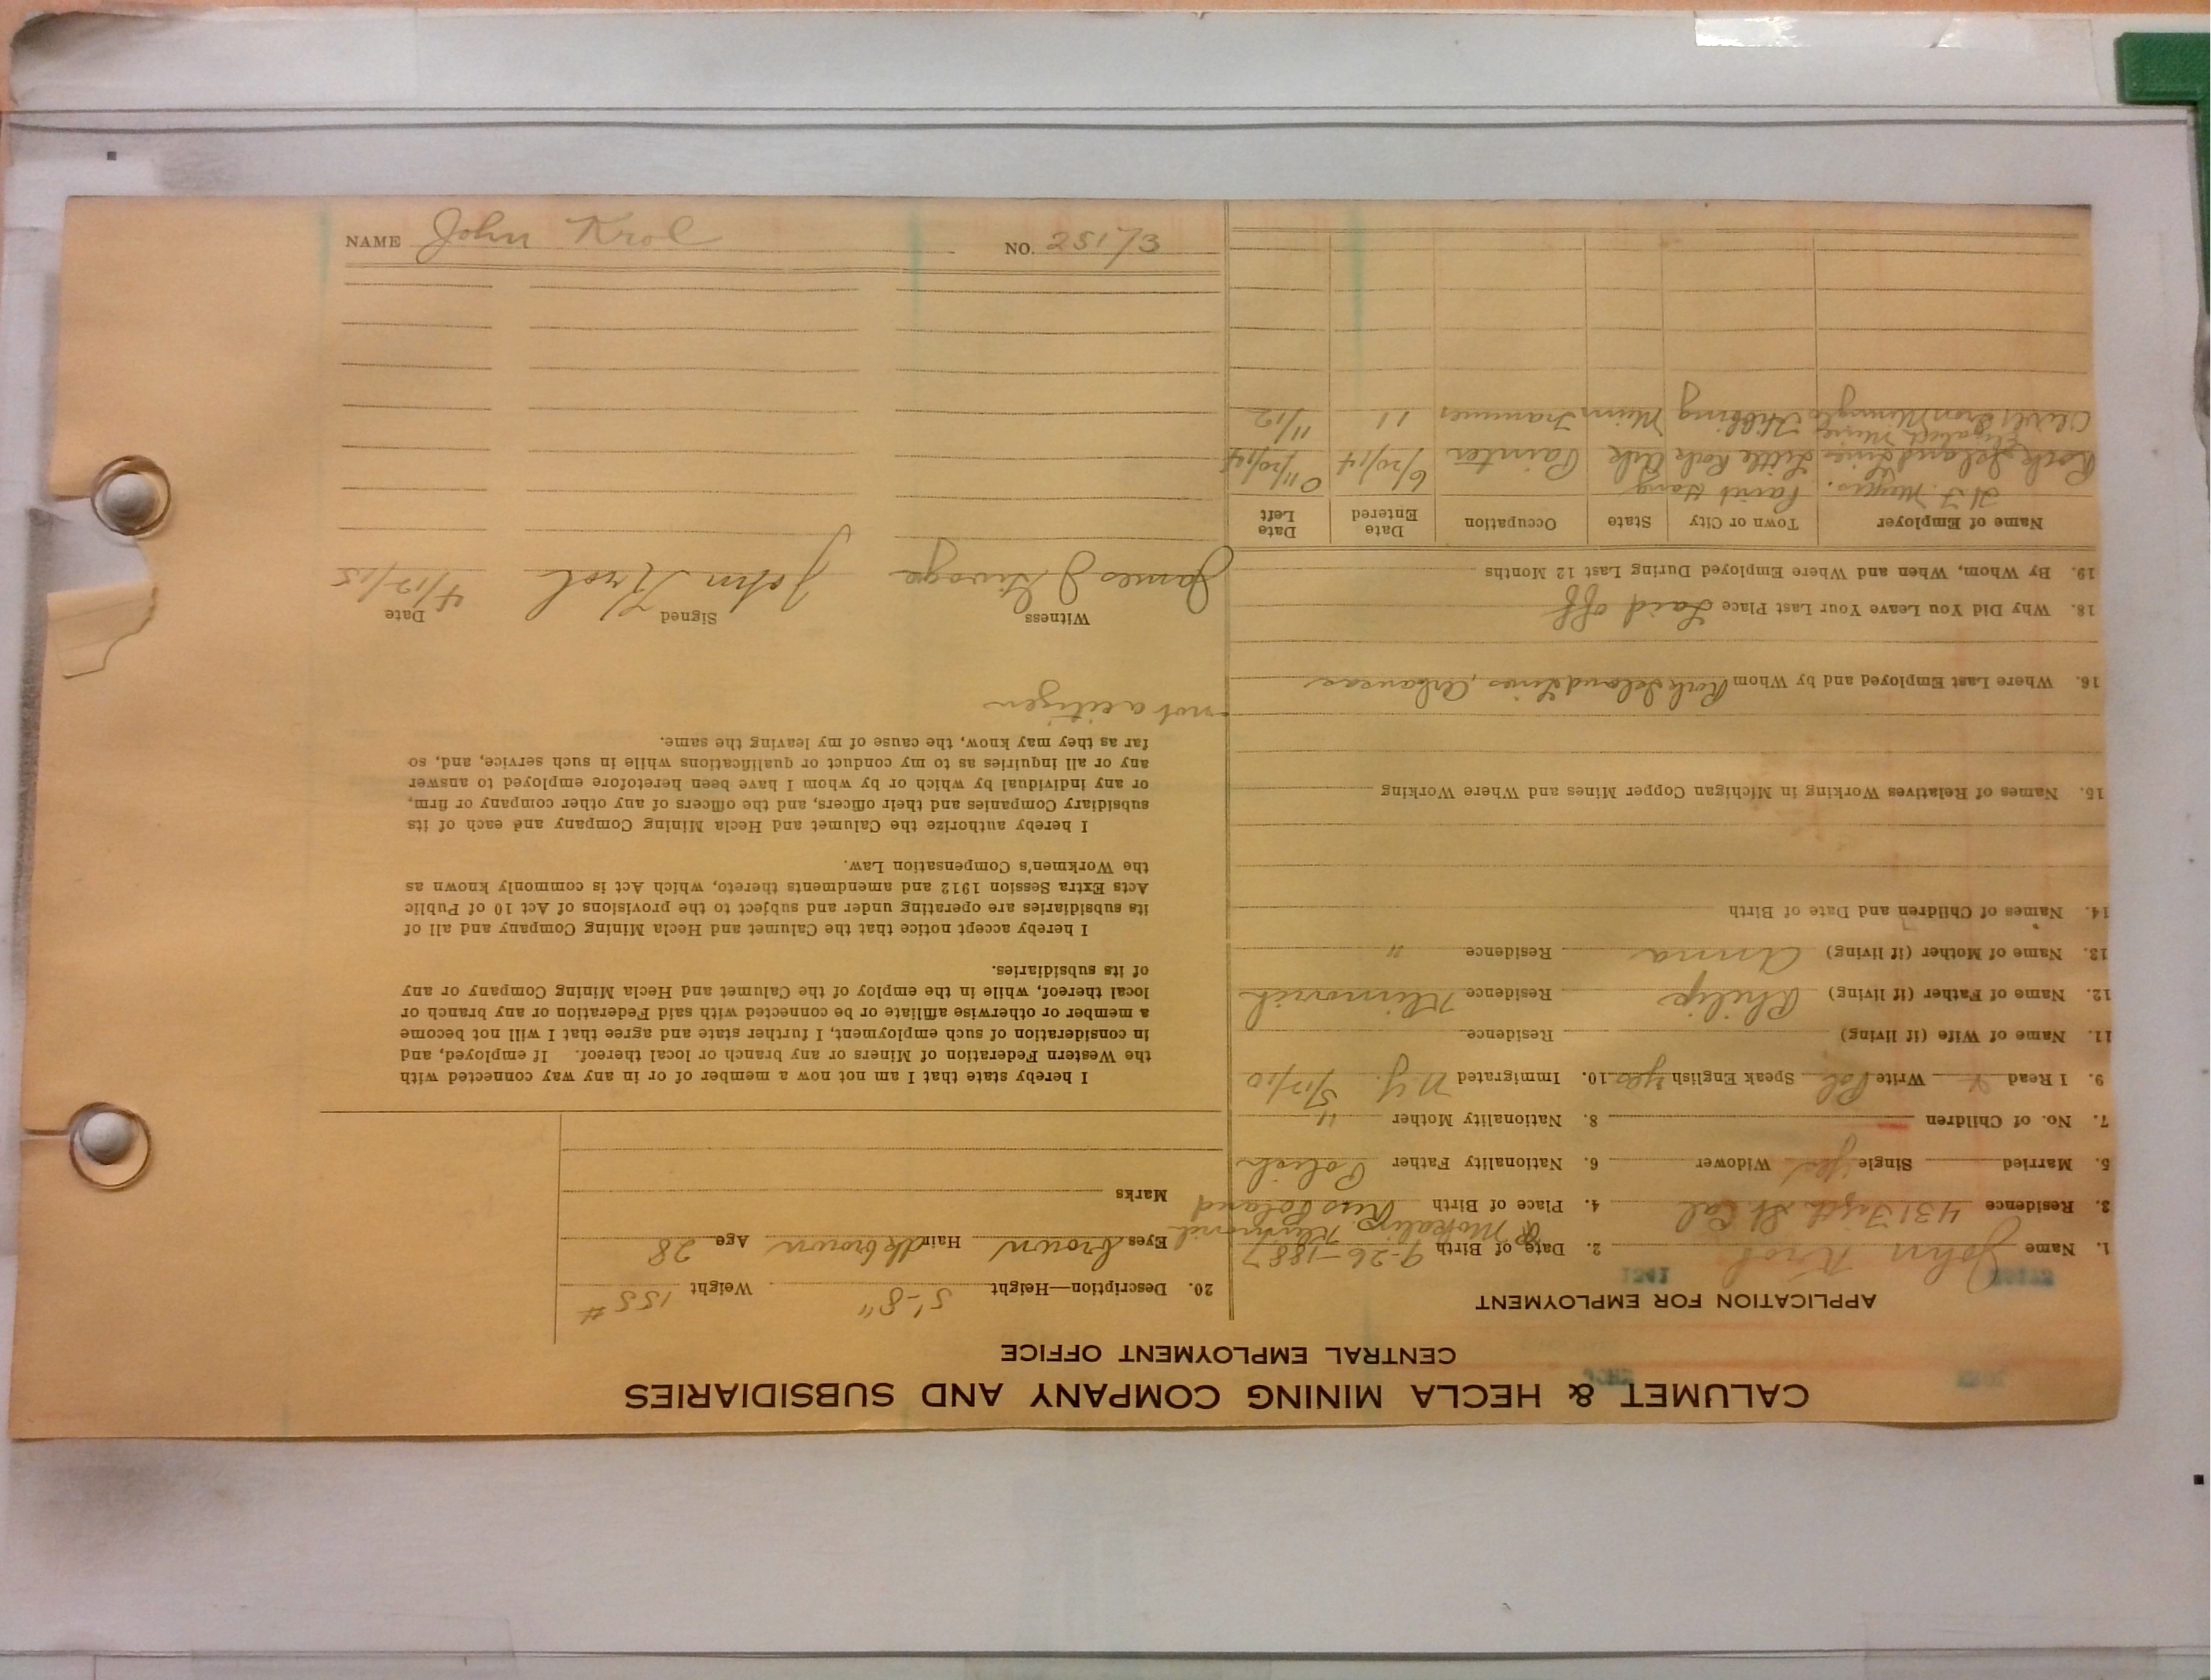 CALUMET & HECLA MINING COMPANY AND SUBSIDIARIES
CENTRAL EMPLOYMENT OFFICE
APPLICATION FOR EMPLOYMENT
1. Name John Krol 2. Date of Birth 9-26-1887
3. Residence 431 Fifth St Cal 4. Place of Birth Russ Poland
5. Married Single yes Widower 6. Nationality Father Polish
7. No. of Children 8. Nationality Mother "
9. I Read & Write Pol Speak English yes 10. Immigrated N.Y. 5/12/10
11. Name of Wife (if living) Residence
12. Name of Father (if living) Philip Residence
13. Name of Mother (if living) Anna Residence "
14. Names of Children and Date of Birth
15. Names of Relatives Working in Michigan Copper Mines and Where Working
16. Where Last Employed and by Whom Rock Island Lines, Arkansas
18. Why Did You Leave Your Last Place Laid off
19. By Whom, When and Where Employed During Last 12 Months
Name of Employer Town or City State Occupation Date Entered Date Left
Paint Gang
Rock Island Lines Little Rock Ark Painter 6/20/14 11/20/14
Elizabeth Mine
Oliver Iron Mining Co Hibbing Minn Trammer 11 11/12
20. Description—Height 5'-8" Weight 155 #
Eyes brown Hair dk brown Age 28
Marks
I hereby state that I am not now a member of or in any way connected with
the Western Federation of Miners or any branch or local thereof. If employed, and
in consideration of such employment, I further state and agree that I will not become
a member or otherwise affiliate or be connected with said Federation or any branch or
local thereof, while in the employ of the Calumet and Hecla Mining Company or any
of its subsidiaries.
I hereby accept notice that the Calumet and Hecla Mining Company and all of
its subsidiaries are operating under and subject to the provisions of Act 10 of Public
Acts Extra Session 1912 and amendments thereto, which Act is commonly known as
the Workmen's Compensation Law.
I hereby authorize the Calumet and Hecla Mining Company and each of its
subsidiary Companies and their officers, and the officers of any other company or firm,
or any individual by which or by whom I have been heretofore employed to answer
any or all inquiries as to my conduct or qualifications while in such service, and, so
far as they may know, the cause of my leaving the same.
not a citizen
Witness Signed Date
James J John Krol 4/12/15
NAME John Krol NO. 25173